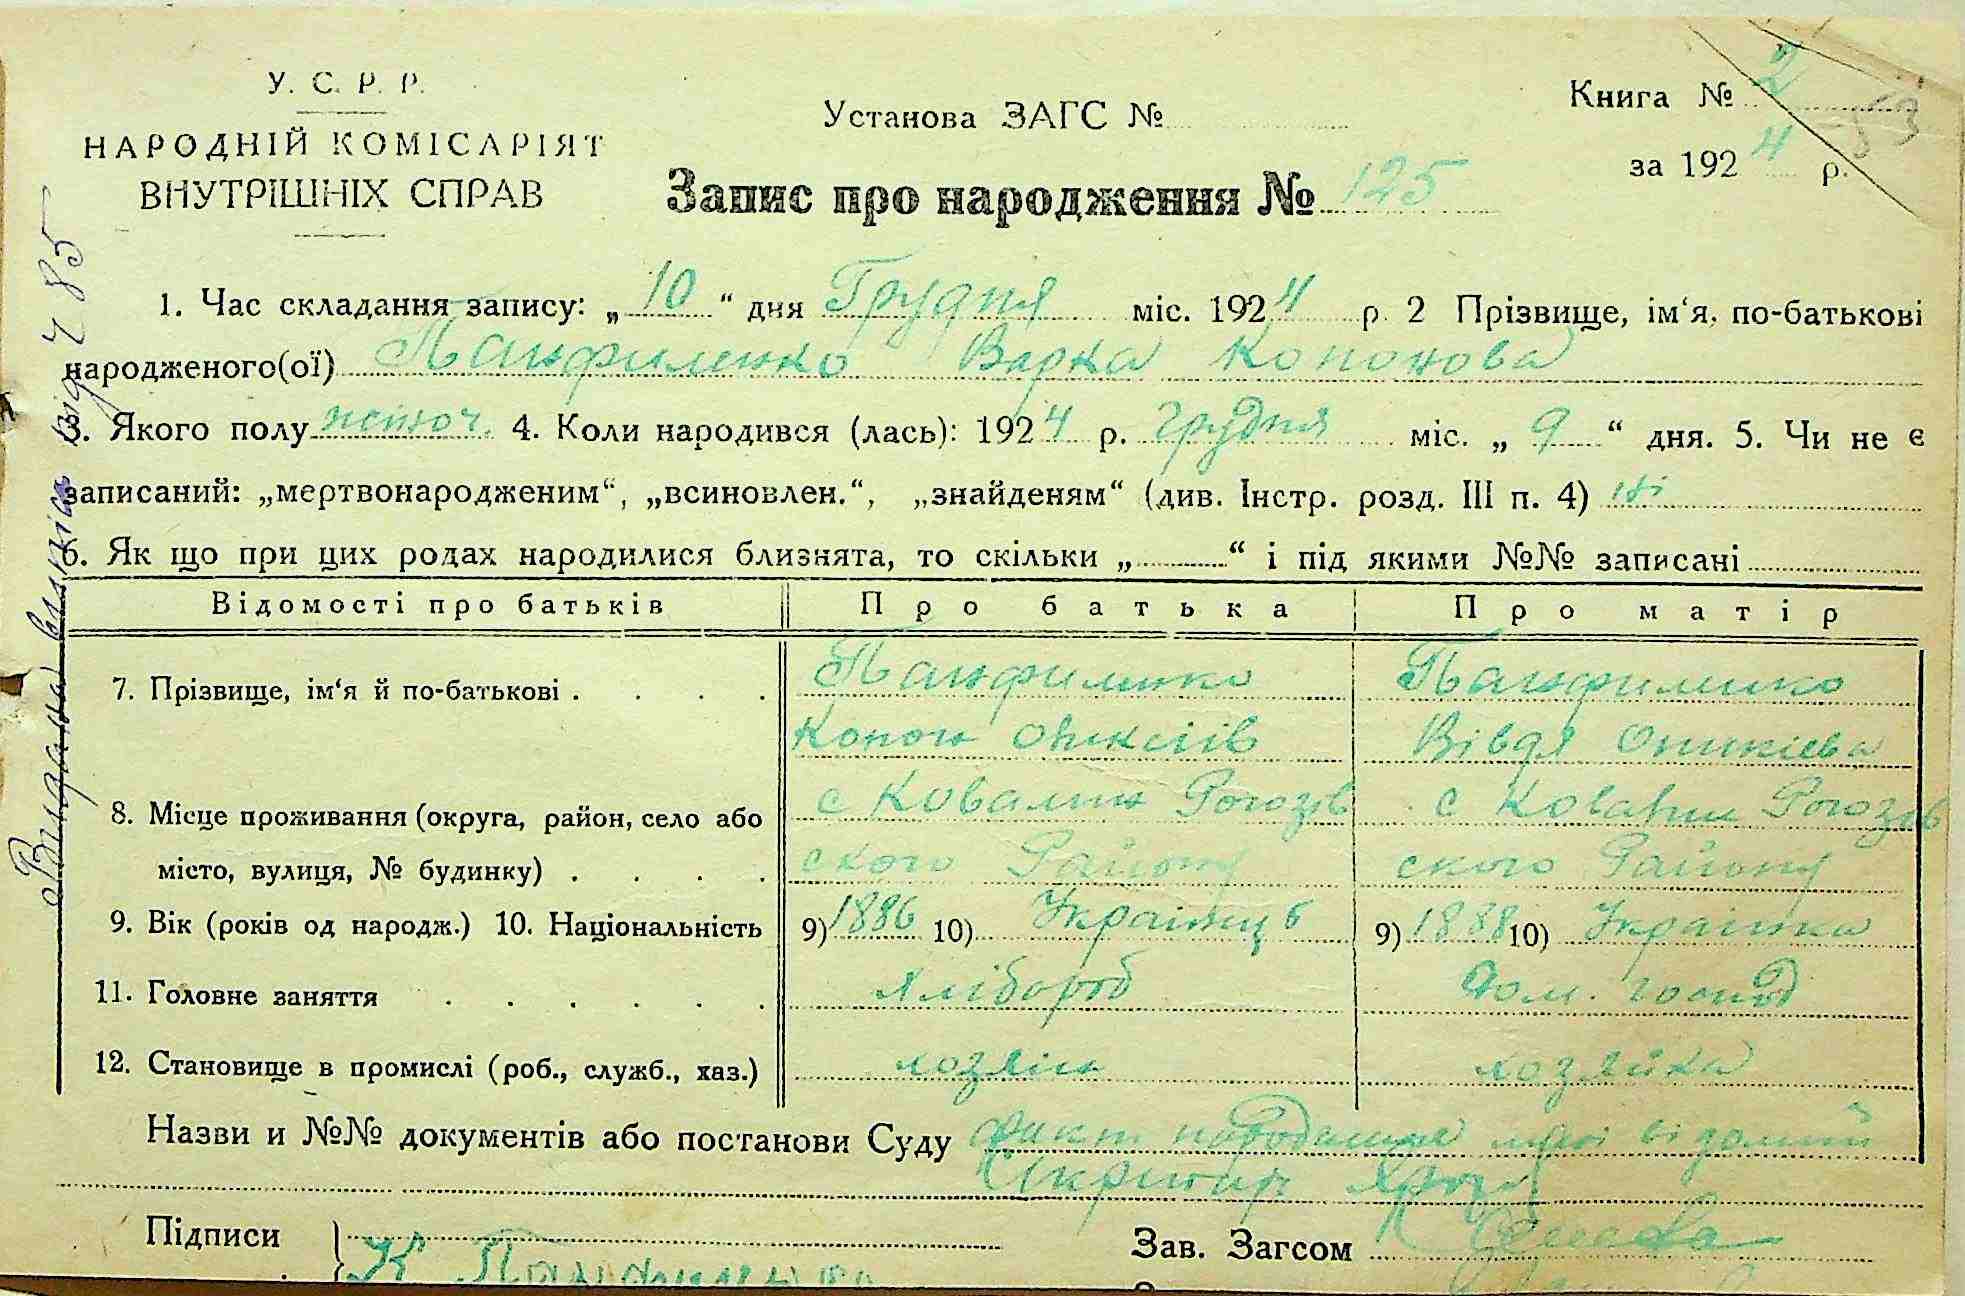 У. С. Р. Р.
НАРОДНІЙ КОМІСАРІЯТ
ВНУТРІШНІХ СПРАВ
Установа ЗАГС №
Книга № 2
53
за 1924 р.
Запис про народження № 125
1. Час складання запису: „10“ дня Грудня міс. 1924 р. 2 Прізвище, ім‘я, по-батькові
народженого(ої) Панфиленко Варка Кононова
3. Якого полу жіноч. 4. Коли народився (лась): 1924 р. грудня міс. „9“ дня. 5. Чи не є
записаний: „мертвонародженим“, „всиновлен.“, „знайденям“ (див. Інстр. розд. III п. 4) ні
6. Як що при цих родах народилися близнята, то скільки „ “ і під якими №№ записані
Відомості про батьків Про батька Про матір
7. Прізвище, ім‘я й по-батькові . . . . Панфиленко Панфиленко
Конон Вівдя
8. Місце проживання (округа, район, село або с Ковалин Рогозів с Ковалин Рогозів
місто, вулиця, № будинку) . . . . ского Району ского Району
9. Вік (років од народж.) 10. Національність 9) 1886 10) Українець 9) 1888 10) Українка
11. Головне заняття . . . . . . Хлібороб Дом. господ
12. Становище в промислі (роб., служб., хаз.) хозяін хозяйка
Назви и №№ документів або постанови Суду факт народження мені відомий
Секретар
Підписи К Панфиленко
Зав. Загсом
Видана виписка від 4 85